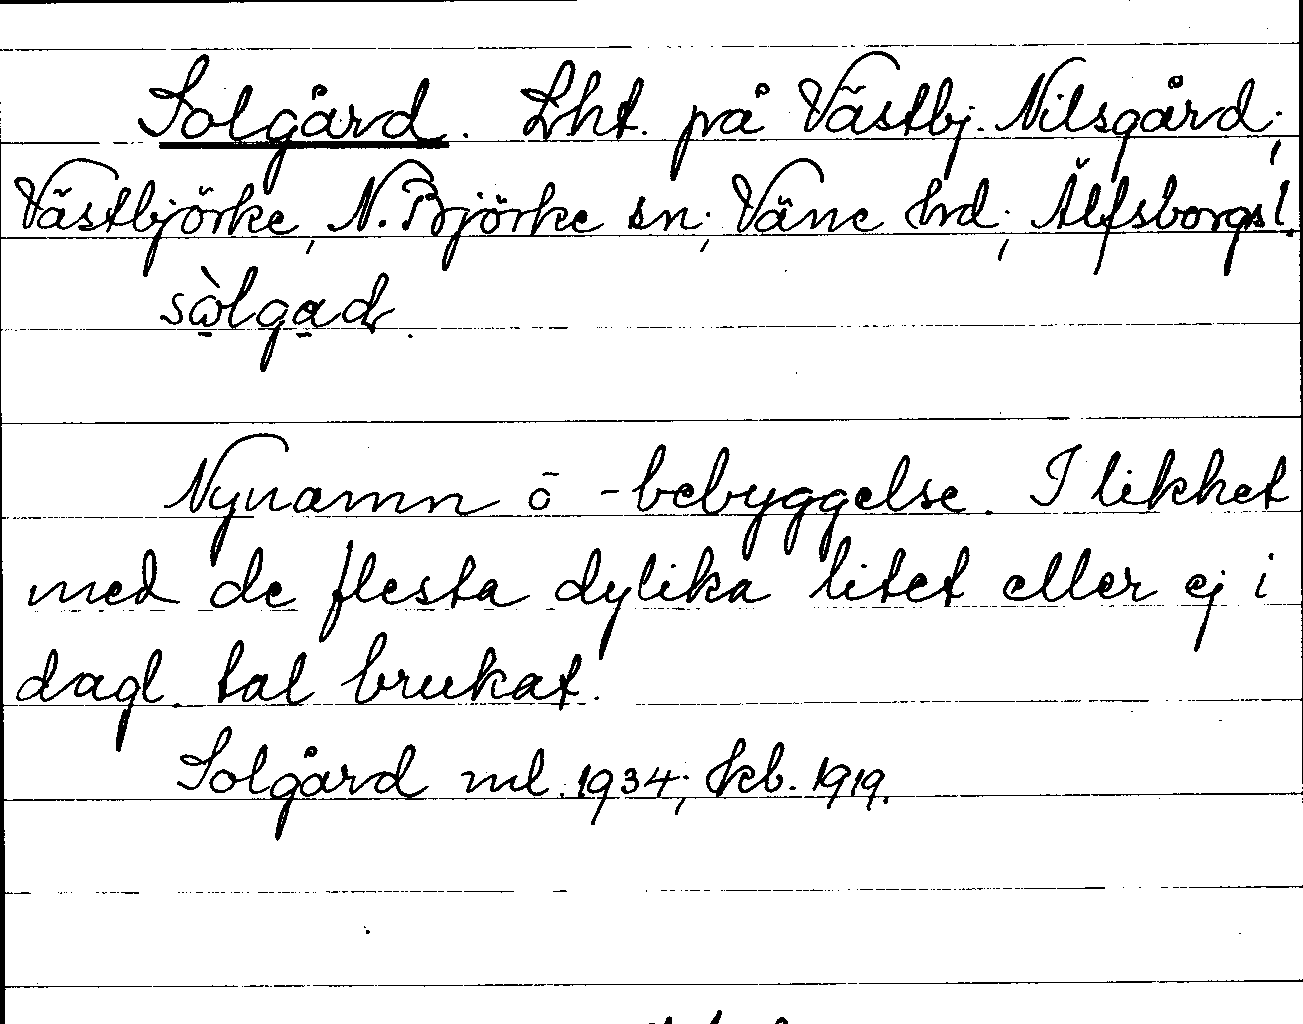 Solgård. Lht. på Västbj. Nilsgård;
Västbjörke, N. Björke sn; Väne hrd; Älfsborgs l.
sòlgad.
Nynamn o -bebyggelse. I likhet
med de flesta dylika litet eller ej i
dagl. tal brukat.
Solgård ml. 1934; kb. 1919.